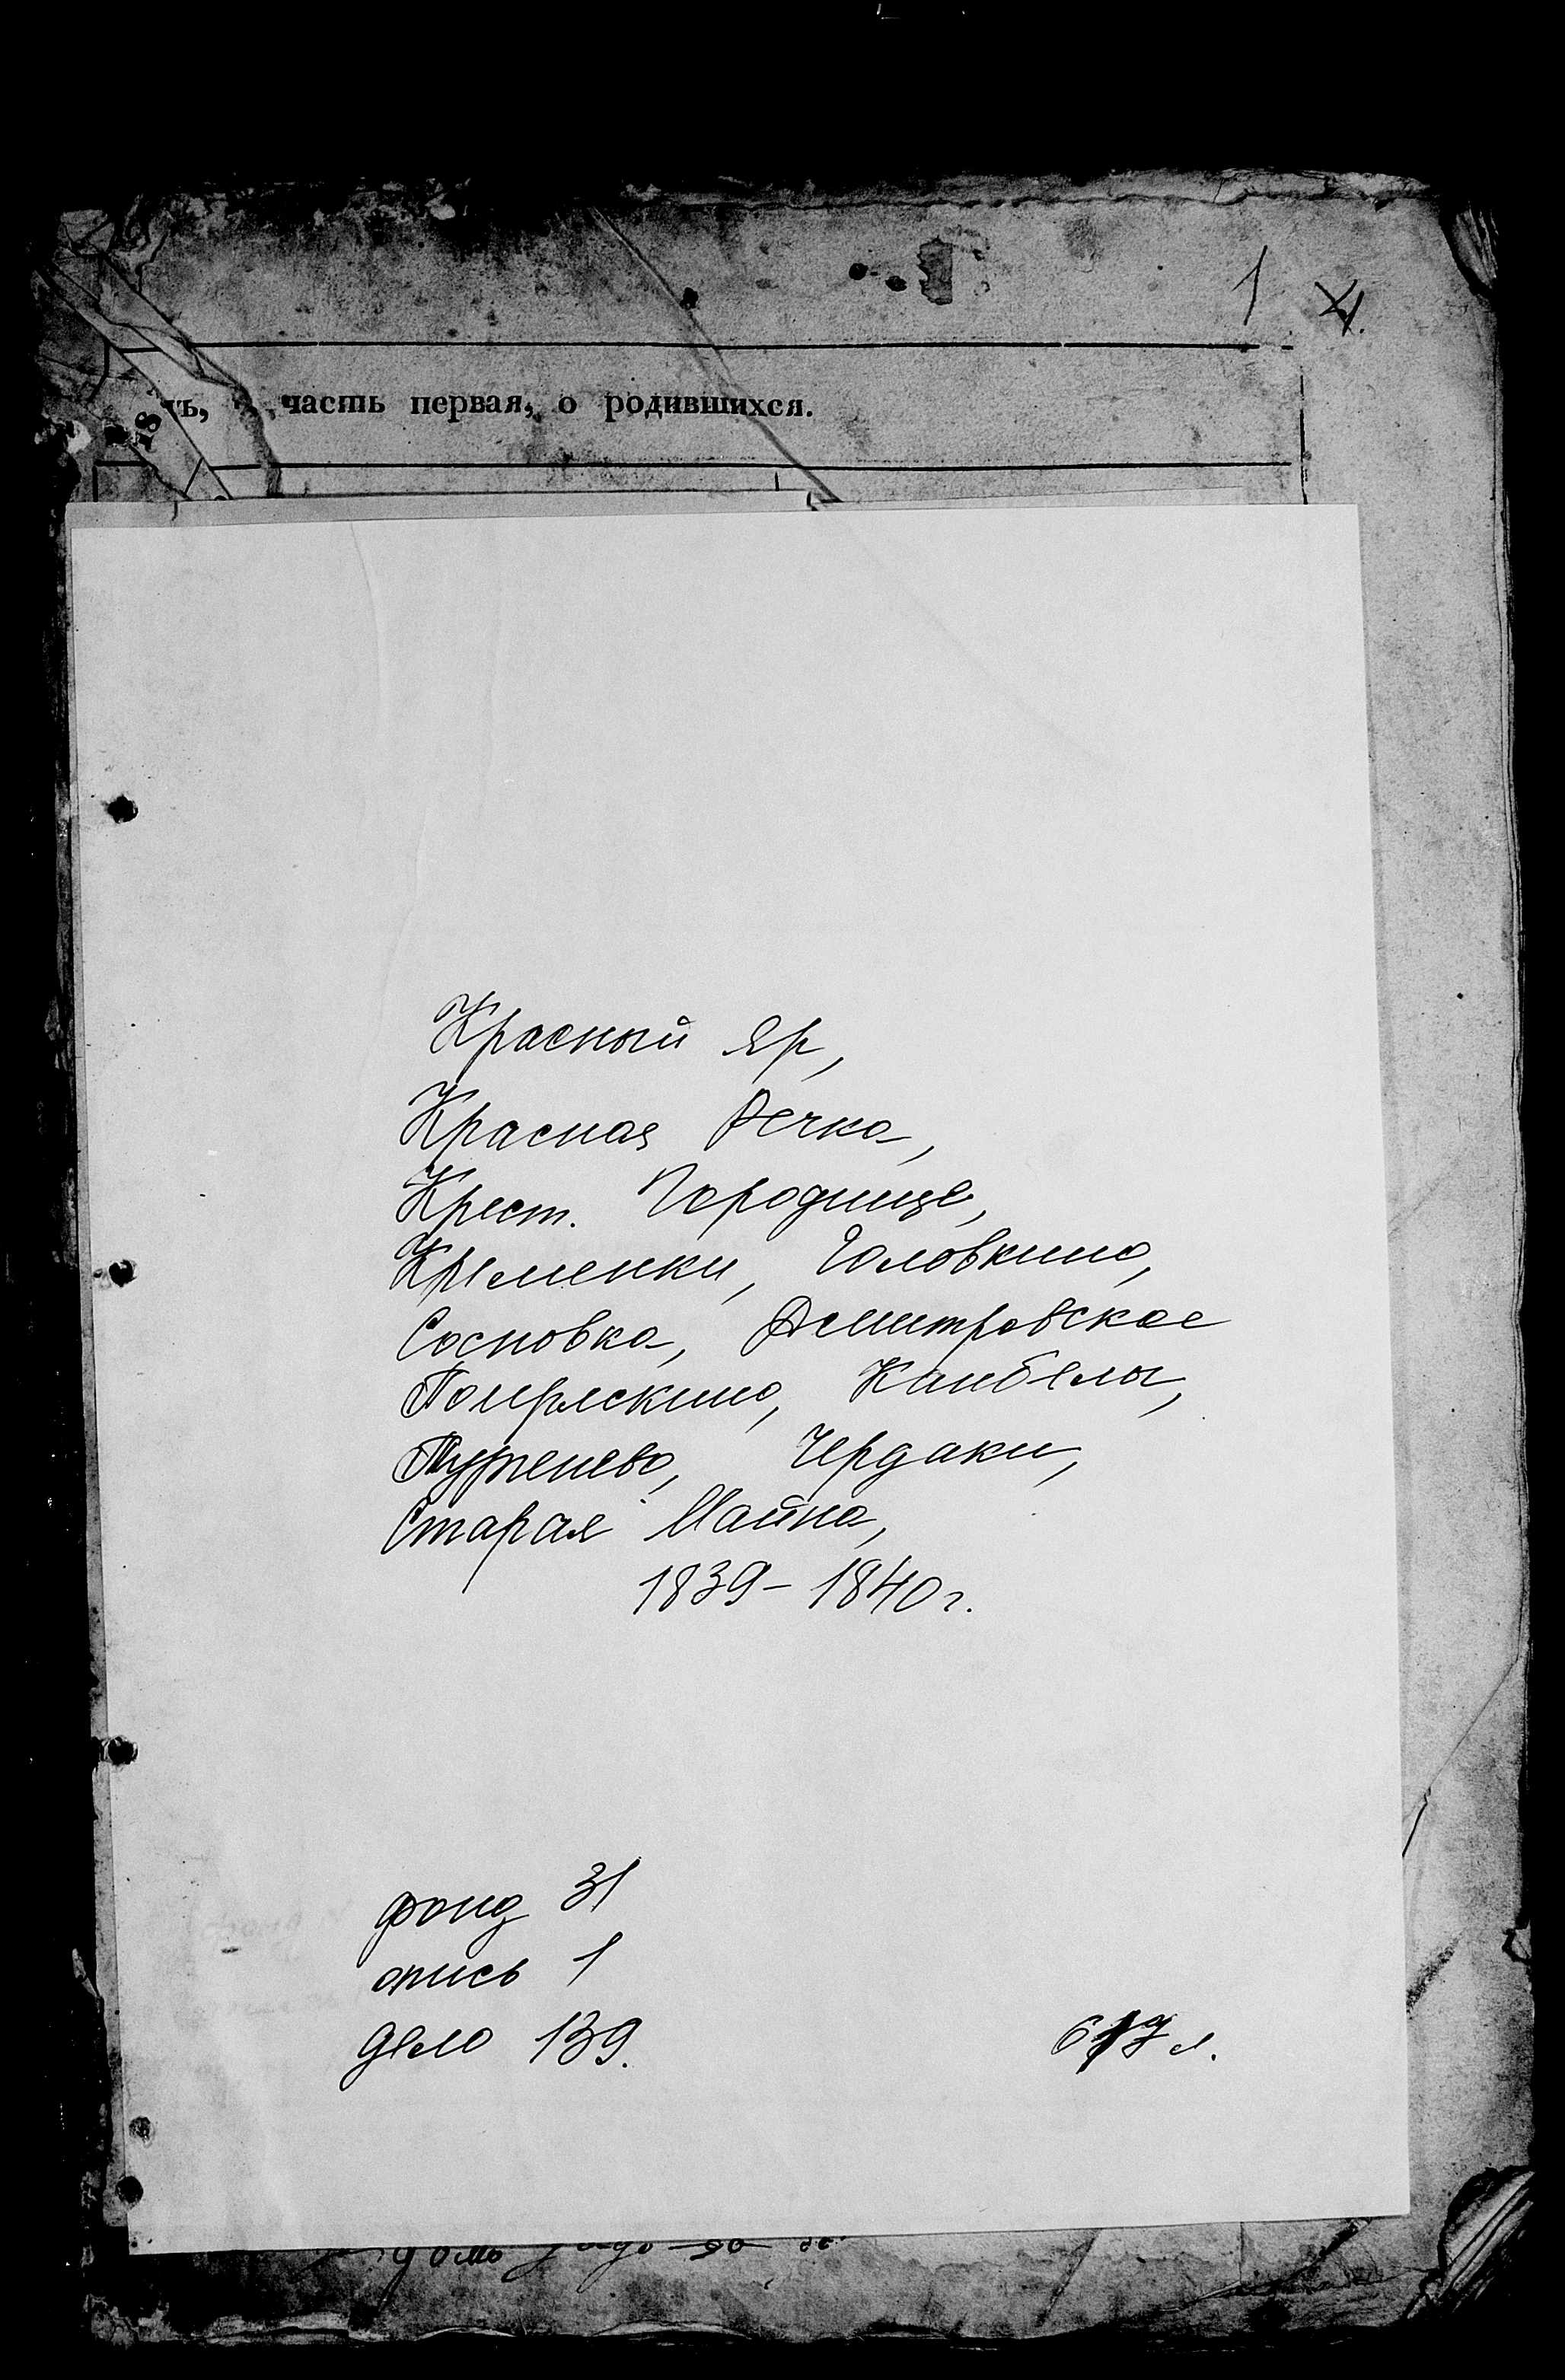 1
часть первая, о родившихся.
Красный Яр,
Красная Речка,
Крест. Городище,
Кременки, Головкино,
Сосновка, Дмитровское
Помряскино, Канбелы,
Тургенево, Чердаки,
Старая Майна,
1839 - 1840 г.
фонд 31
опись 1
дело 139.
л.